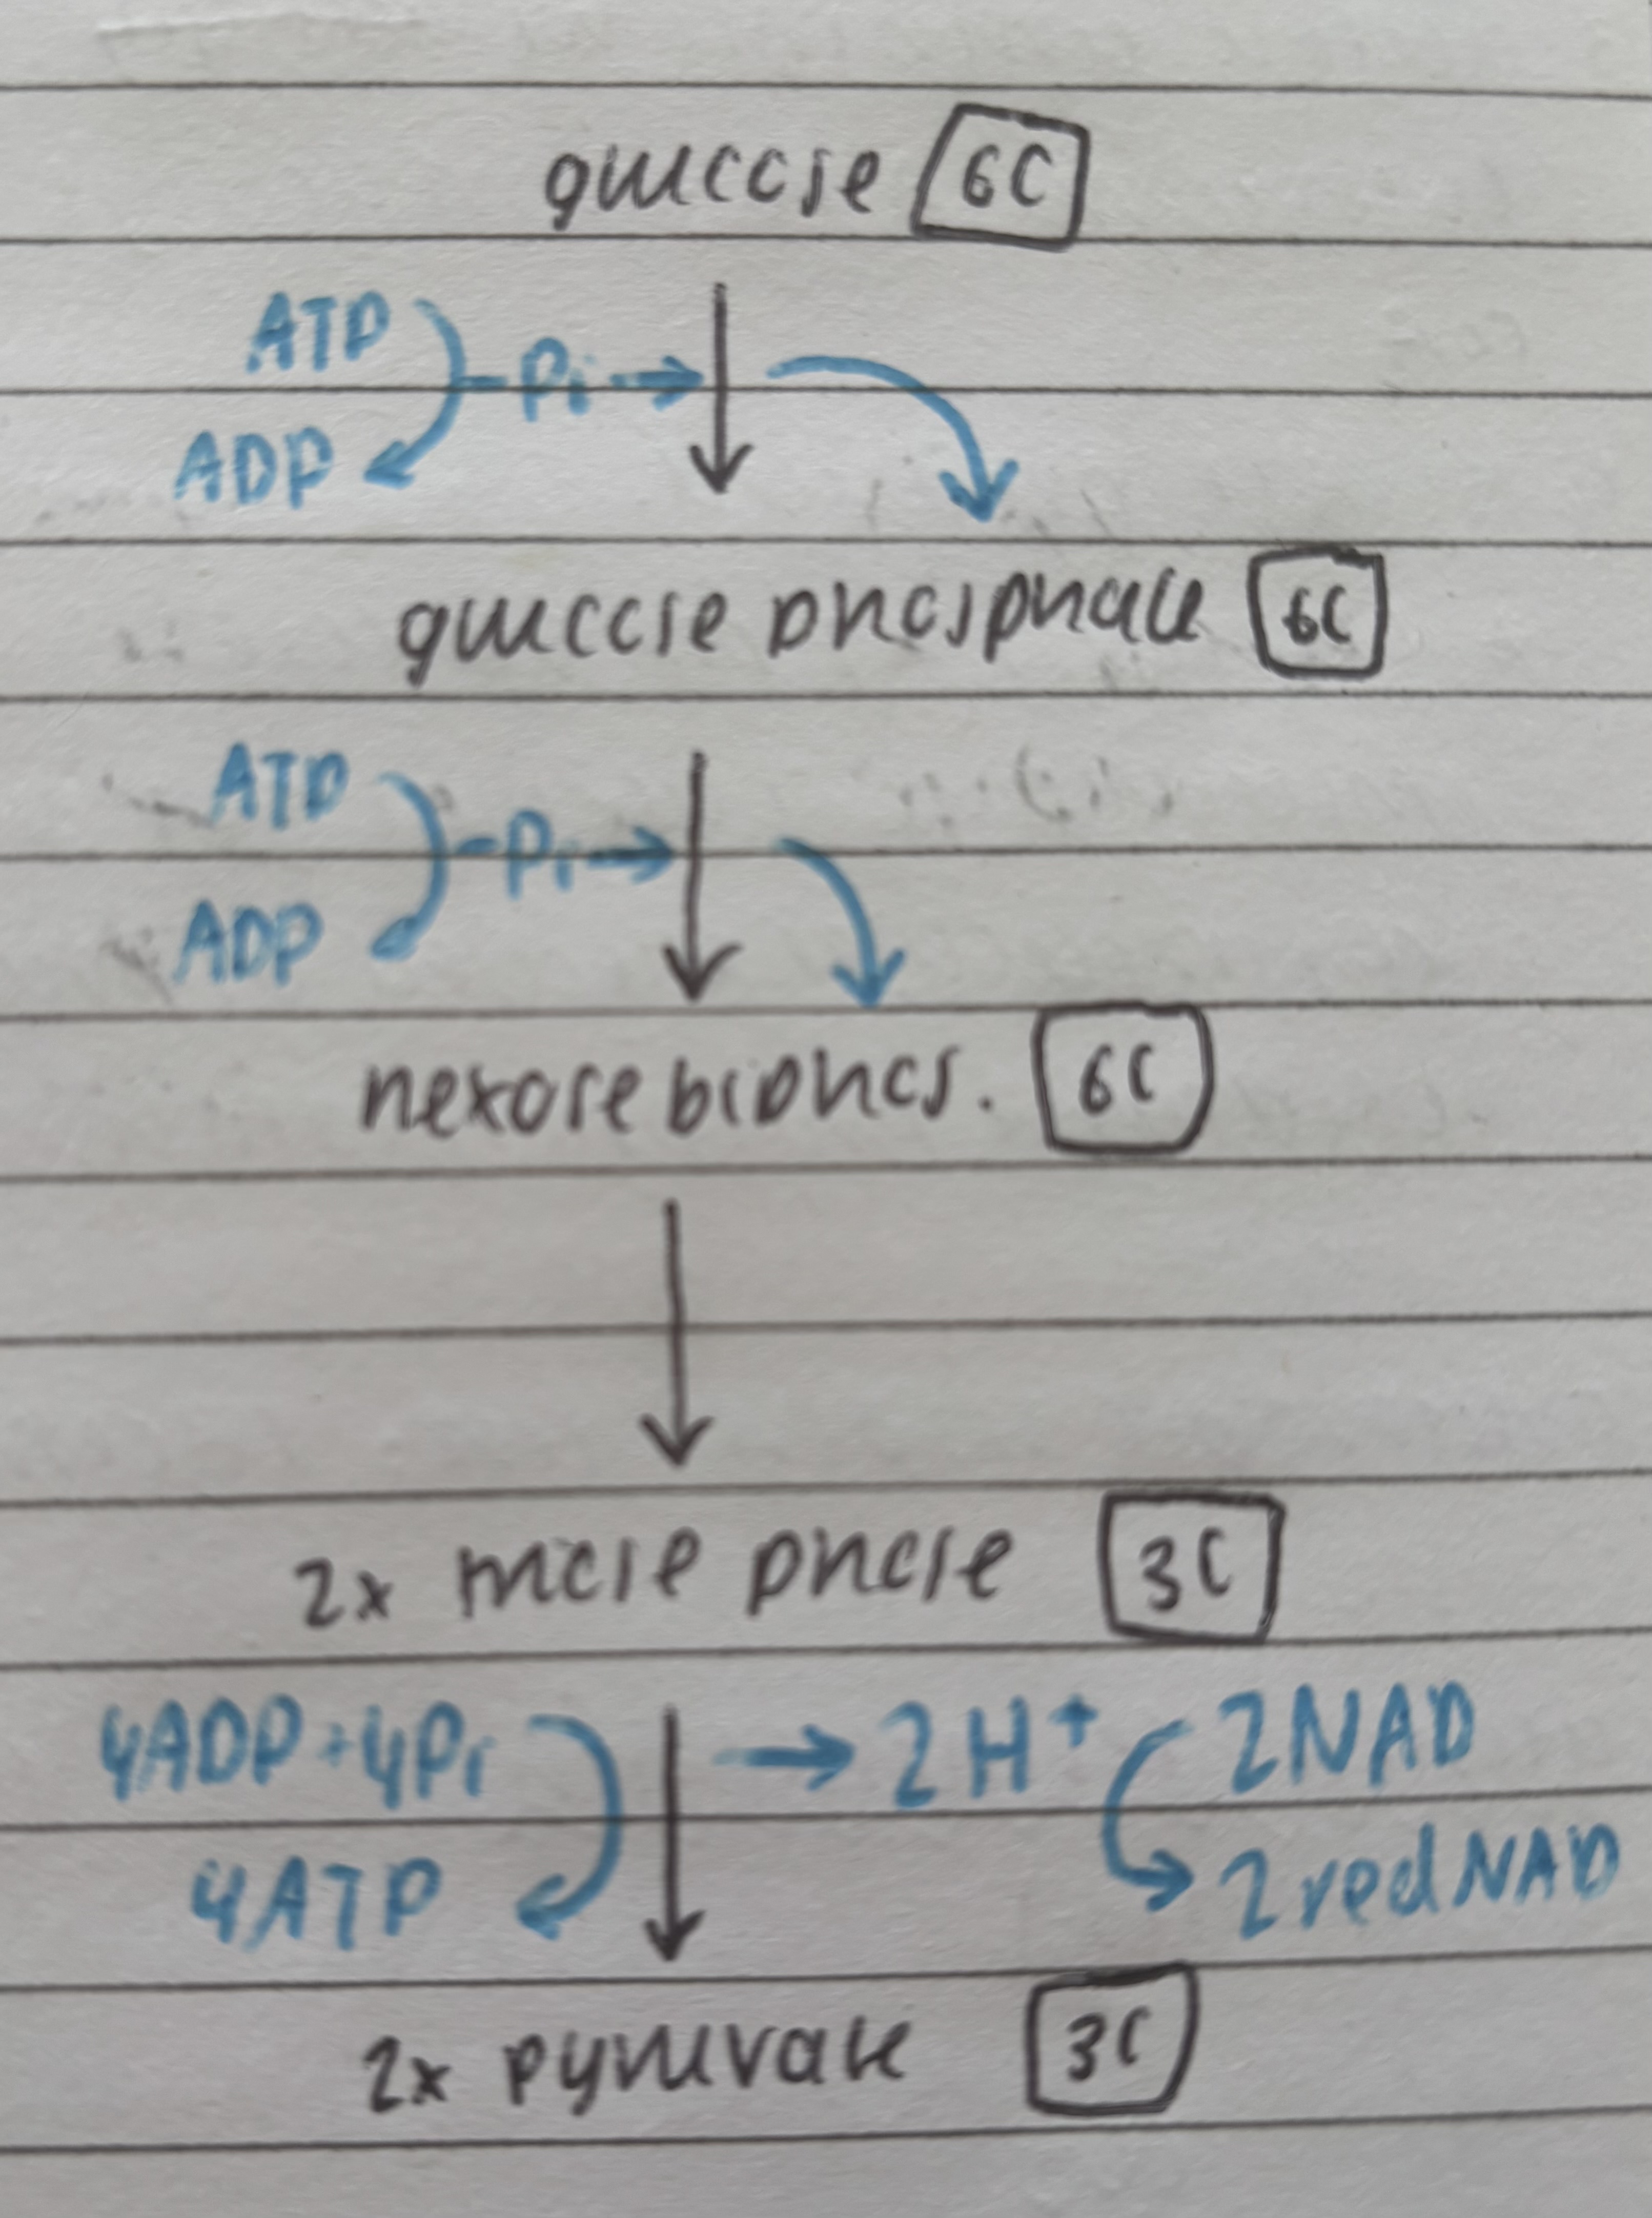 glucose 6C
ATP
Pi
ADP
glucose phosphate 6C
ATP
Pi
ADP
hexose biphos. 6C
2x triose phose 3C
4ADP+4Pi 2H+ 2NAD
4ATP 2redNAD
2x pyruvate 3C